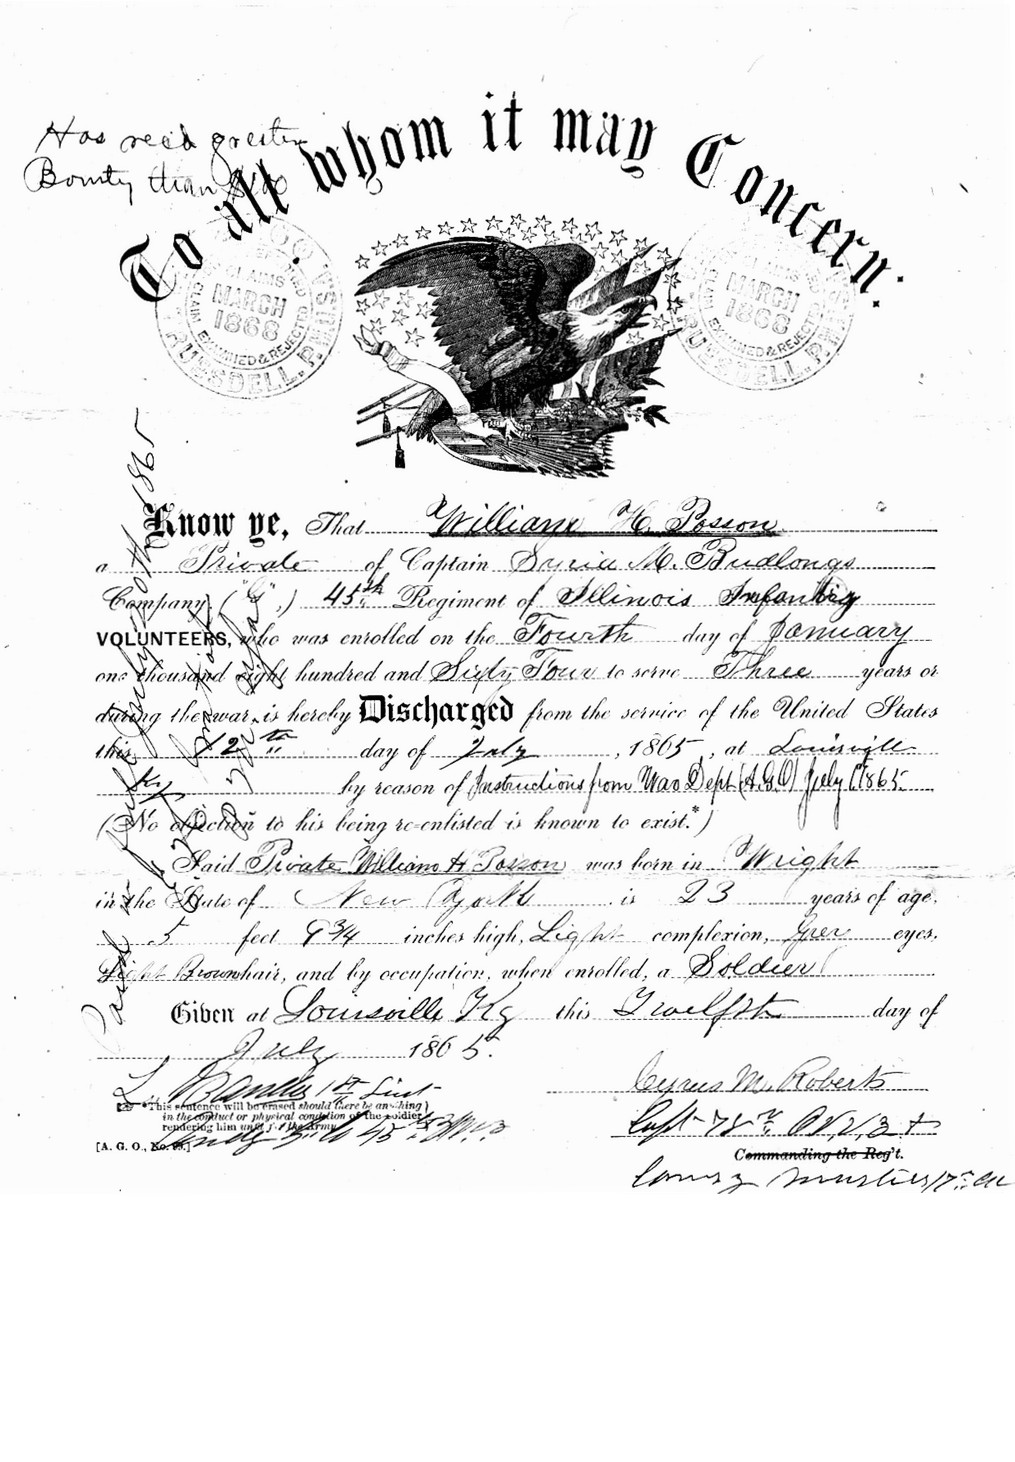 To all whom it may Concern:
Has rec'd greater
Bounty than $100
CLAIMS
MARCH
1868
CLAIM EXAMINED & REJECTED
RUSSDELL. P.M.U.S.A.
CLAIMS
MARCH
1868
CLAIM EXAMINED & REJECTED
Know ye, That William H. Posson
a Private of Captain M. Budlongs
Company, ("G",) 45th Regiment of Illinois Infantry
VOLUNTEERS, who was enrolled on the Fourth day of January
one thousand eight hundred and Sixty Four to serve Three years or
during the war, is hereby Discharged from the service of the United States
this 12th day of July, 1865, at Louisville
Ky by reason of Instructions from War Dept (A.G.O) July 1865.
(No objection to his being re-enlisted is known to exist.*)
Said Private William H Posson was born in Wright
in the State of New York is 23 years of age,
5 feet 9 3/4 inches high, Light complexion, Grey eyes,
Light Brown hair, and by occupation, when enrolled, a Soldier
Given at Louisville Ky this Twelfth day of
July 1865.
1st Lieut
Cyrus M. Roberts
Capt 78th O.V.V.I
*This sentence will be erased should there be anything
in the conduct or physical condition of the soldier
rendering him unfit for the Army.
[A. G. O., No. 99.]
Commanding the Reg't.
July 1865